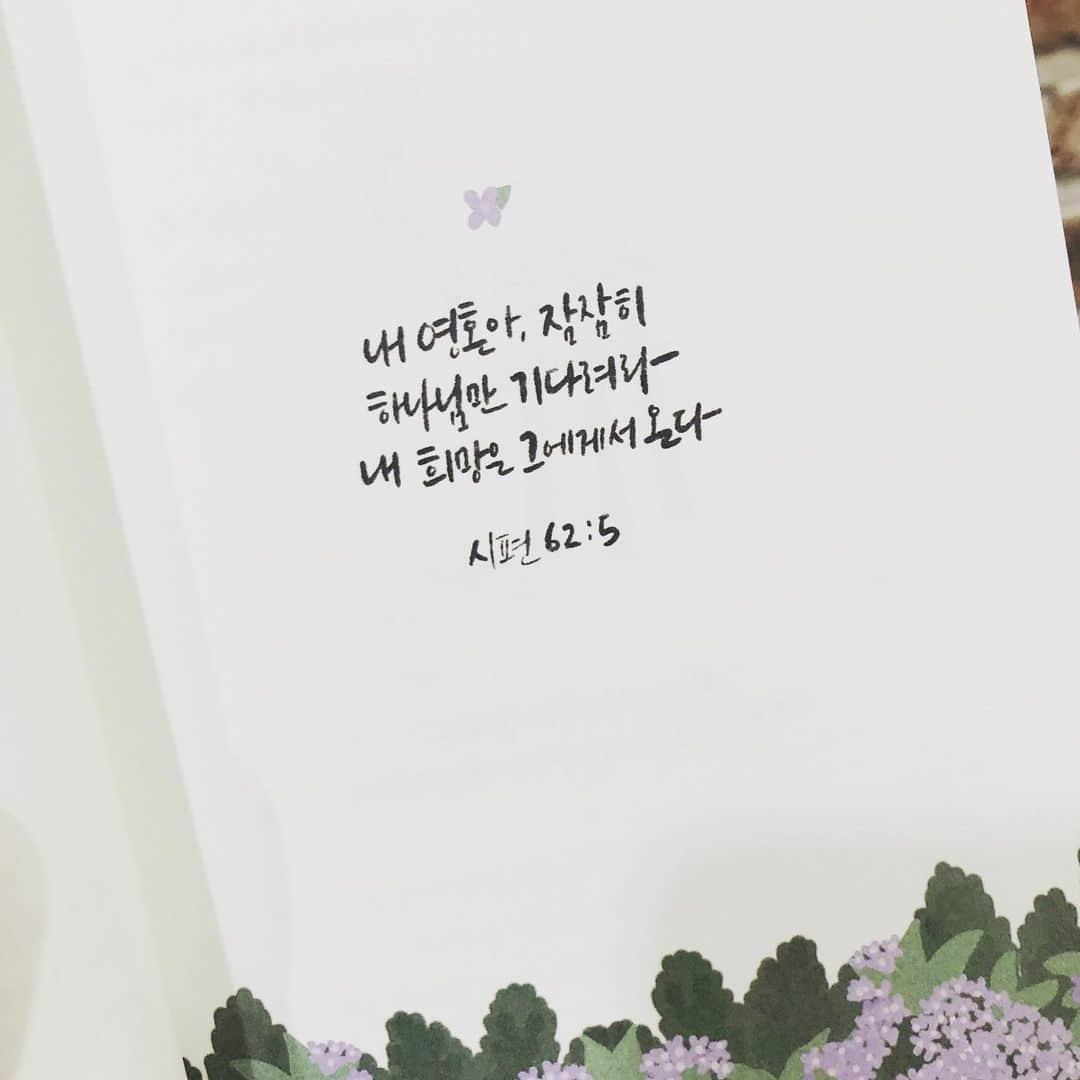 내 영혼아, 잠잠히
하나님만 기다려라-
내 희망은 그에게서 온다-
시편 62:5